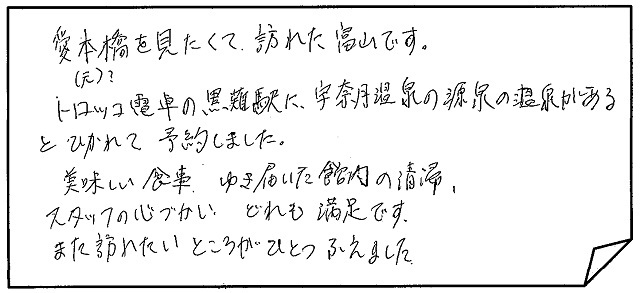 愛本橋を見たくて、訪れた富山です。
(元)?
トロッコ電車の黒薙駅に、宇奈月温泉の源泉の温泉がある
と ひかれて 予約しました。
美味しい食事、ゆき届いた館内の清掃、
スタッフの心づかい どれも 満足です。
また訪れたい ところが ひとつ ふえました